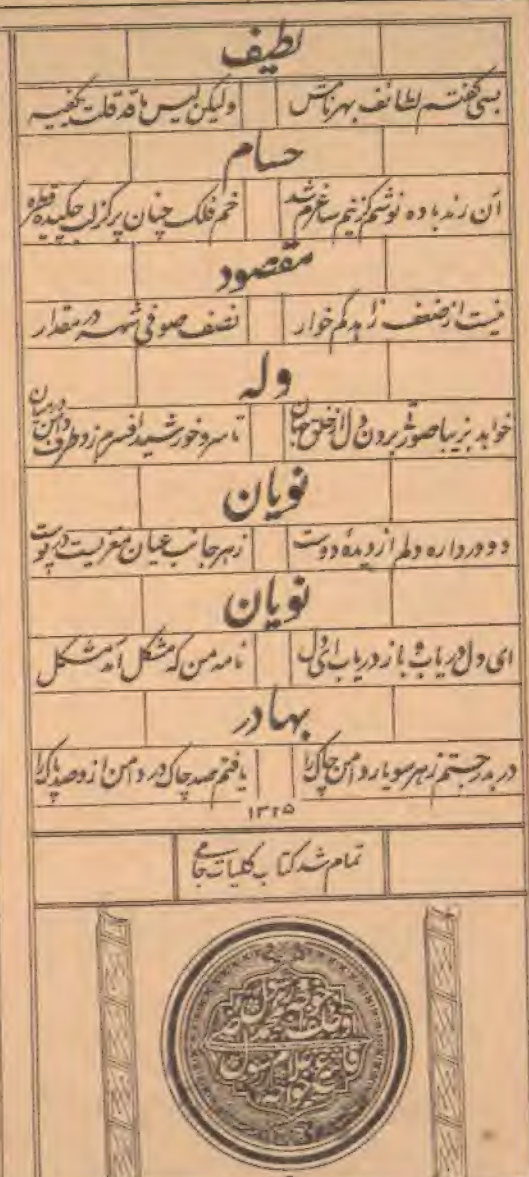 لطیف
بسی گفتم لطائف بهر نامش ولیکن لیس ما قد قلت یکفیه
حسام
آن رند باده نوشم کز خم ساغرم شد خم فلک چنان پر کز لب چکیده قطره
مقصود
نیست از ضعف زاهد کم خوار نصف صوفی شهر در مقدار
وله
خواهد بزیبا صورتی بردن دل از خلق جهان تا سرو خورشید افسرم زد طرف دامن در میان
نویان
دو ورداره دلم از دیدهٔ دوست زهر جانب عیان مغزیست در پوست
نویان
ای دل دریاب و باز دریاب ای دل نامه من که مشکل آمد مشکل
بهادر
در بدر جستم زهر سو یار دامن چاک را یافتم صد چاک در دامن ازو صد پاک را
۱۳۲۵
تمام شد کتاب کلیات جامی